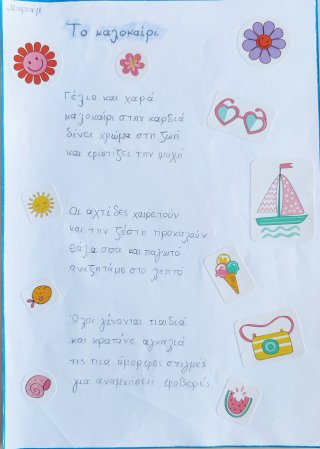 Μαριάμ
Το καλοκαίρι
Γέλιο και χαρά
καλοκαίρι στην καρδιά
δίνει χρώμα στη ζωή
και φωτίζει την ψυχή
Οι αχτίδες χαιρετούν
και την ζέστη προκαλούν
θάλασσα και παγωτό
αναζητάμε στο λεπτό
Όλοι γίνονται παιδιά
και κρατάνε αγκαλιά
τις πιο όμορφες στιγμές
για αναμνήσεις φοβερές